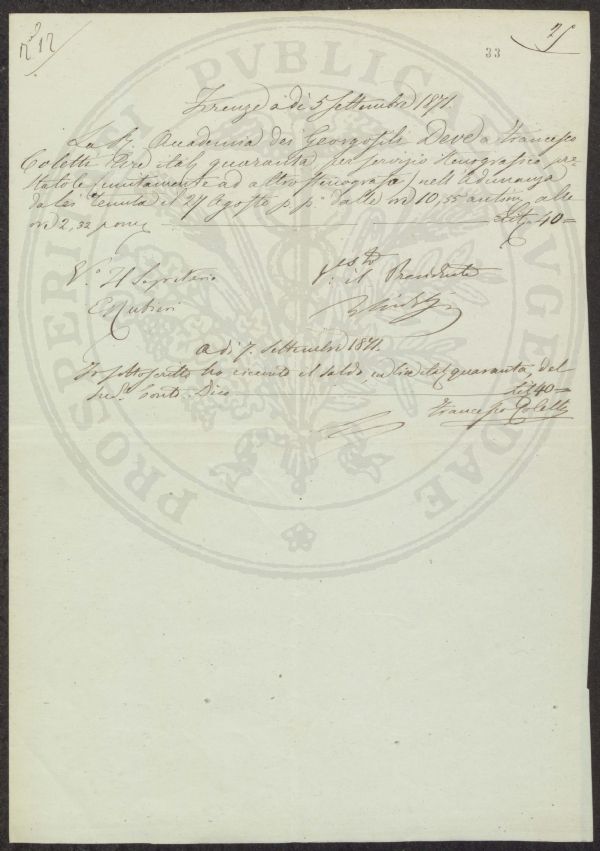 n° 12
33
Firenze a dì 5 Settembre 1871.
La R. Accademia dei Georgofili Deve a Francesco
Coletti Lire ital. quaranta per servizio stenografico pre-
statole (unitamente ad altro stenografo) nell'Adunanza
da lei tenuta il 27 Agosto p.p. dalle ore 10,55 antim. alle
ore 2,32 pom. Lit. 40=
V.° Il Segretario
V.° il Presidente
E. Rubieri
a dì 7. Settembre 1871.
Io sottoscritto ho ricevuto il saldo, in lire ital. quaranta, del
sud.° Conto. Dico Lit 40=
Francesco Coletti
PROSPERITATI PUBLICAE AUGENDAE